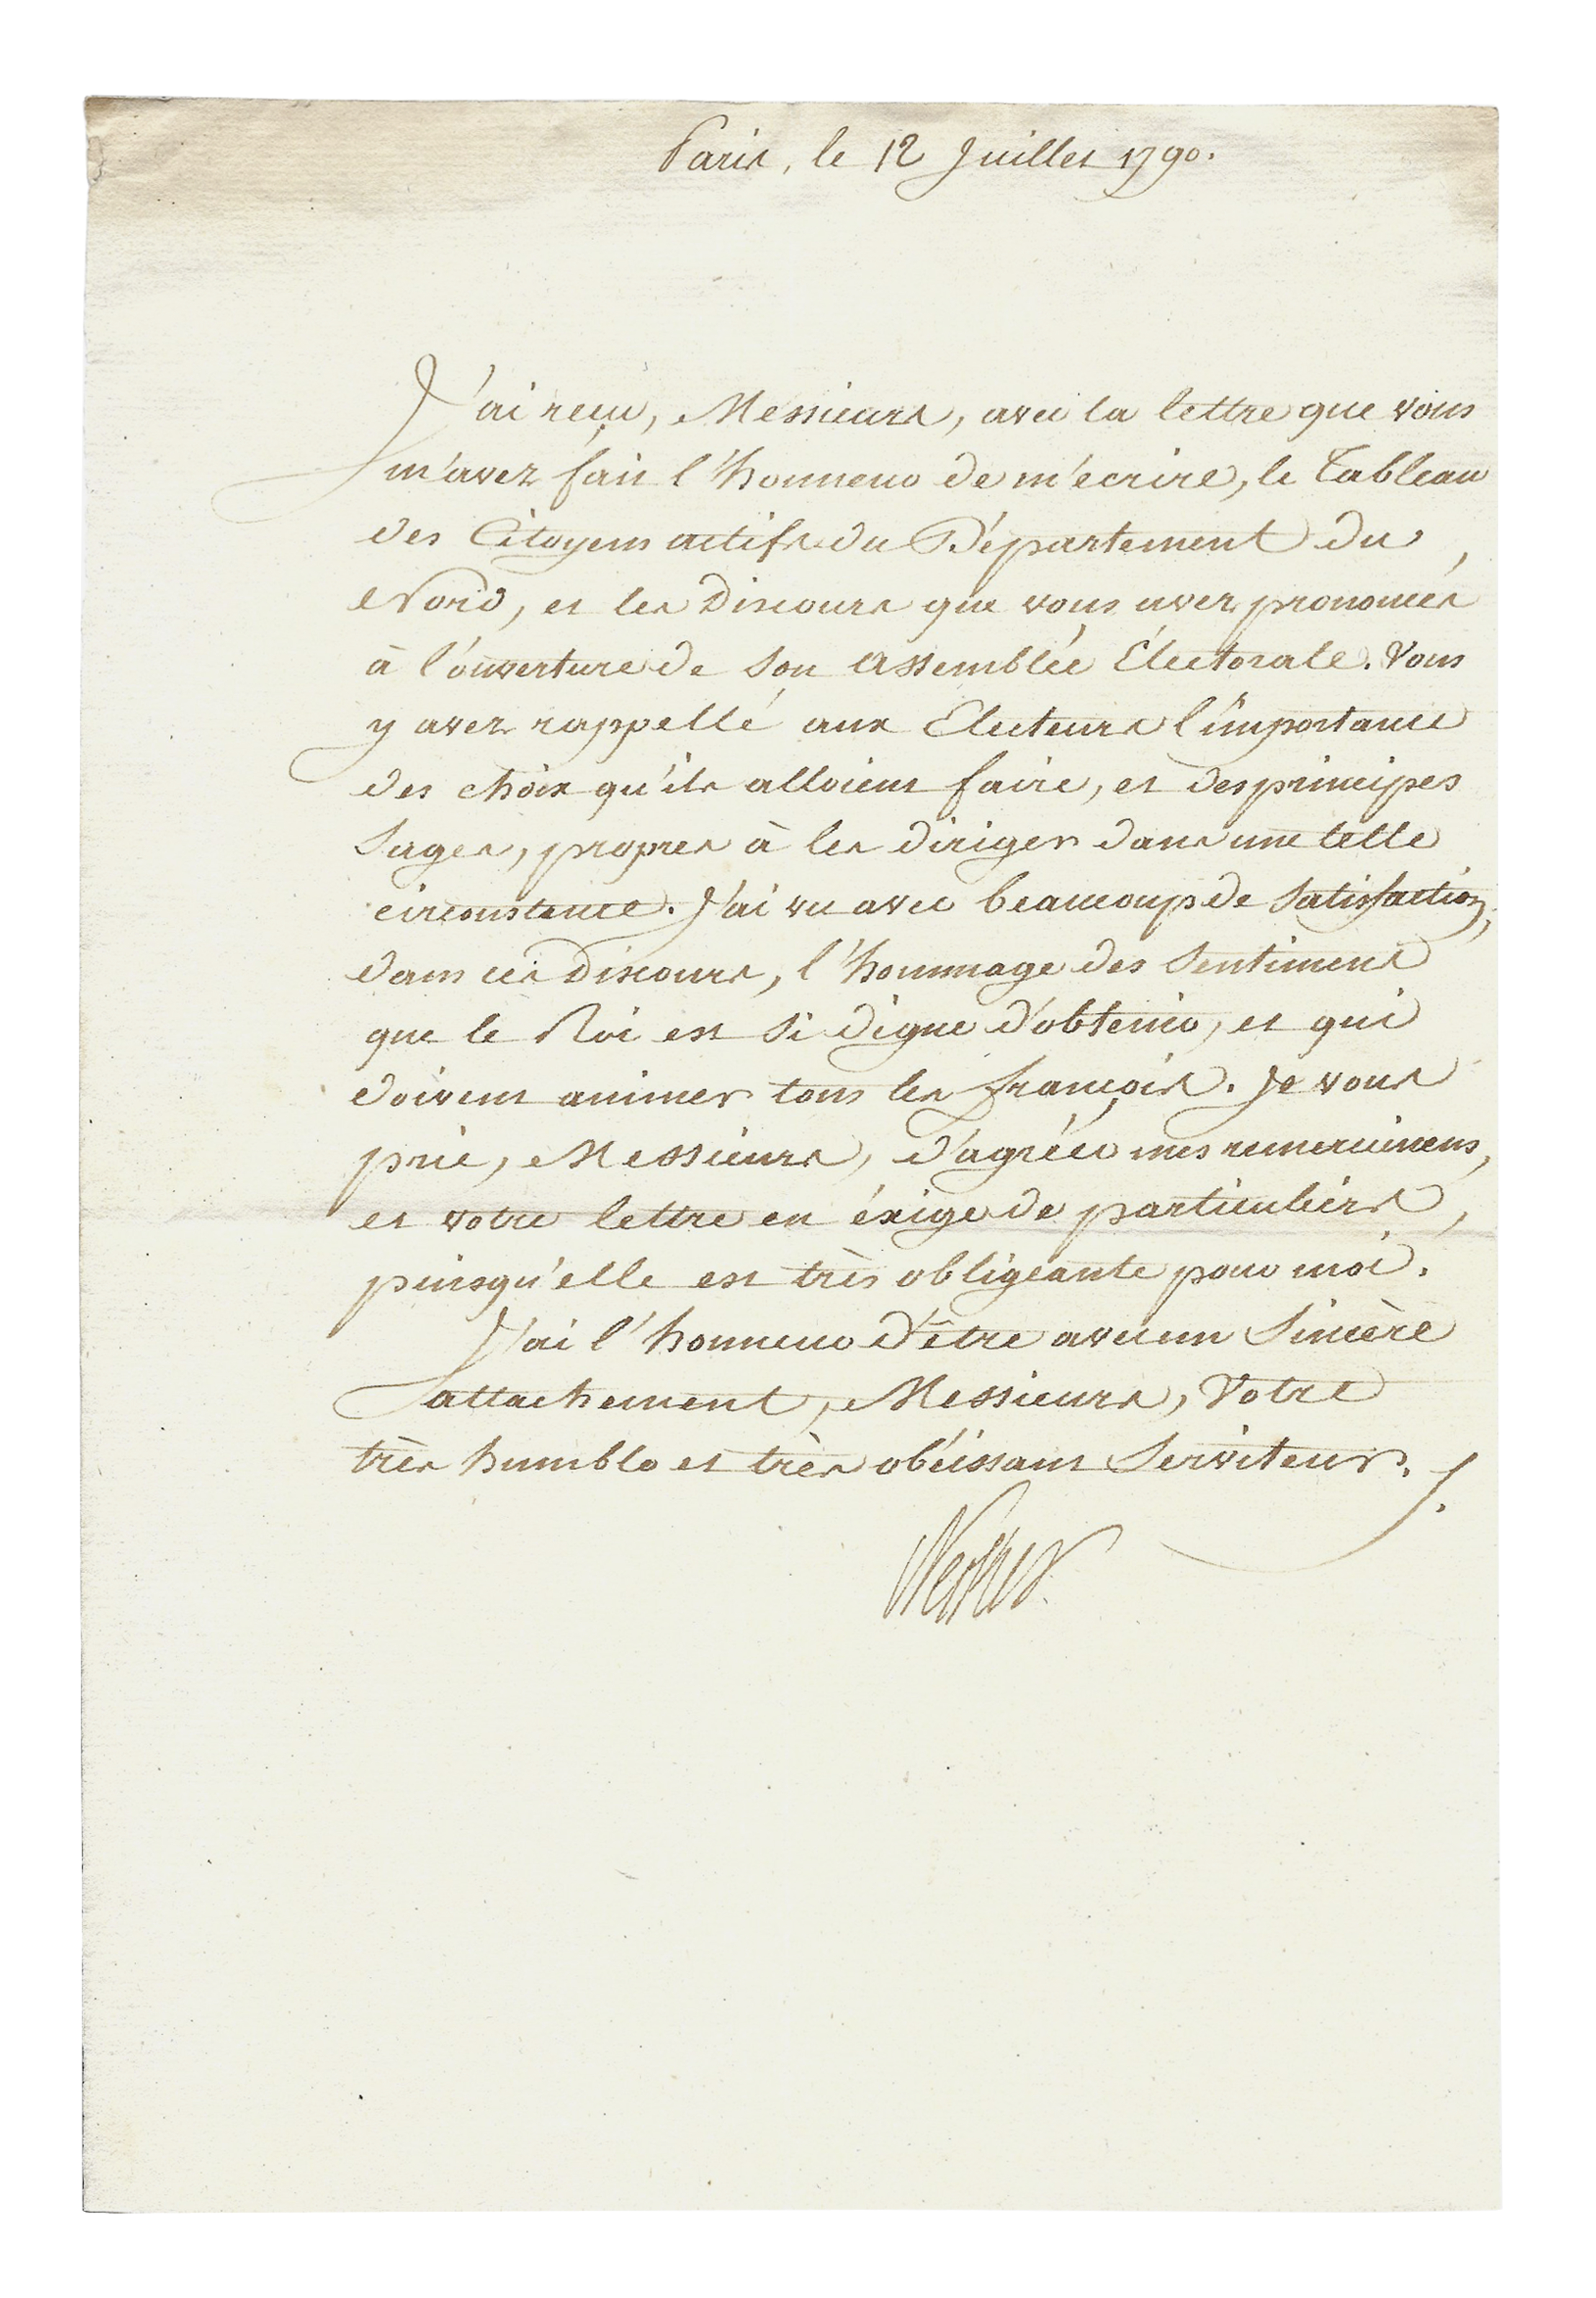 Paris, le 12 Juillet 1790.
J'ai reçu, Messieurs, avec la lettre que vous
m'avez fait l'honneur de m'ecrire, le Tableau
des Citoyens actifs du Département du
Nord, et les Discours que vous avez prononcés
à l'ouverture de son Assemblée Électorale. Vous
y avez rappellé aux Electeurs l'importance
des choix qu'ils alloient faire, et des principes
sages, propres à les diriger dans une telle
circonstance. J'ai vu avec beaucoup de satisfaction,
dans ces Discours, l'hommage des sentimens
que le Roi est si digne d'obtenir, et qui
doivent animer tous les françois. Je vous
prie, Messieurs, d'agréer mes remerciemens,
et votre lettre en éxige de particuliers,
puisqu'elle est très obligeante pour moi.
J'ai l'honneur d'être avec un sincère
attachement, Messieurs, Votre
très humble et très obéissant Serviteur.
Necker